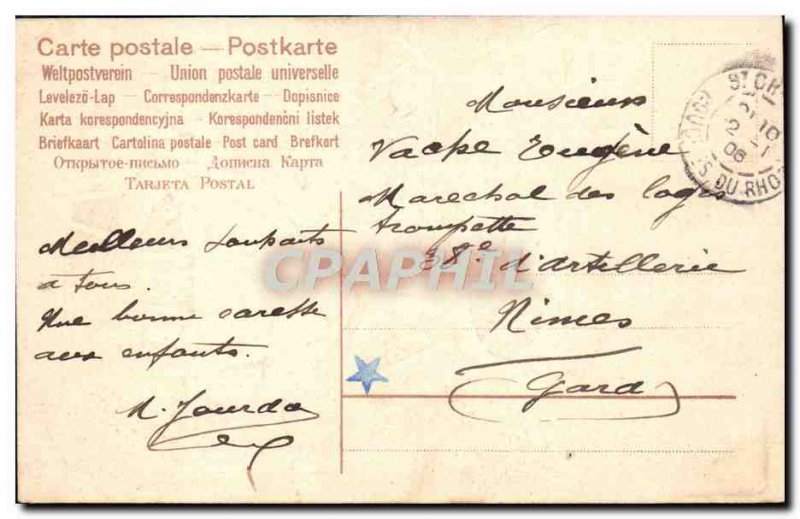 Carte postale — Postkarte
Weltpostverein — Union postale universelle
Levelező-Lap — Correspondenzkarte — Dopisnice
Karta korespondencyjna — Korespondenční listek
Briefkaart Cartolina postale Post card Brefkort
Открытое-письмо — Дописна Карта
TARJETA POSTAL
Meilleurs souhaits
a tous.
Une bonne caresse
aux enfants.
M. Jourda
Monsieur
Vache Eugène
Marechal des logis
trompette
38e d'artillerie
Nimes
(Gard)
ST CH
10
2 - 1
08
S DU RHO
CPAPHIL